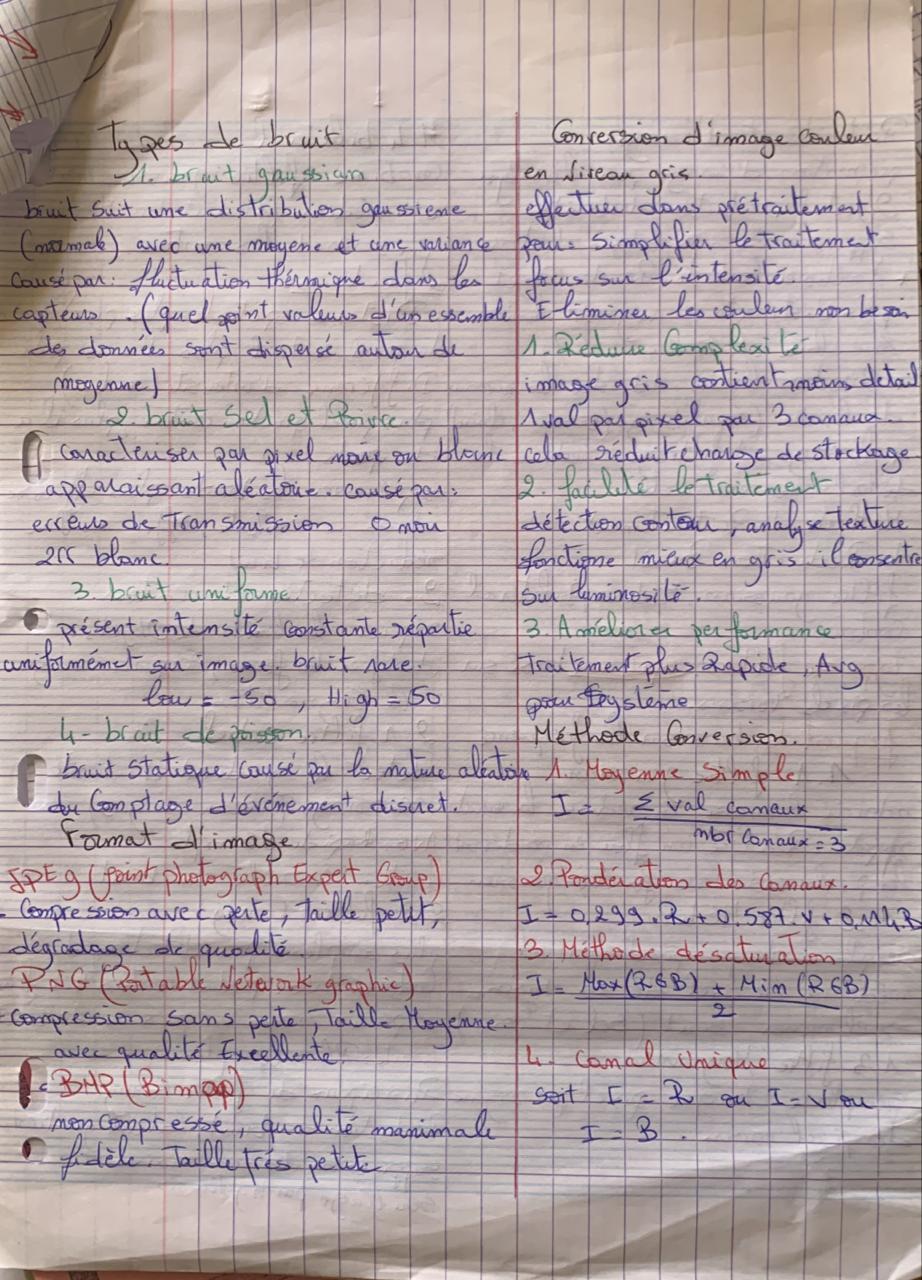 Types de bruit
1. bruit gaussian
bruit suit une distribution gaussiene
(normale) avec une moyene et une variance
causé par: fluctuation thérmique dans les
capteurs. (quel point valeurs d'un essemble
des données sont dispersé autour de
moyenne)
2. bruit Sel et Poivre.
caractériser par pixel noir ou blanc
apparaissant aléatoire. causé par:
erreurs de Transmission 0 noir
255 blanc.
3. bruit uniforme.
présent intensité constante répartie
uniformémet sur image. bruit rare.
low = -50, High = 50
4- bruit de poisson.
bruit statique causé par la nature aléatoire
du Comptage d'événement discret.
Format d'image
JPEg (joint photograph Expert Group)
- Compression avec perte, Taille petit,
dégradage de qualité.
PNG (Portable Network graphic)
- Compression sans perte, Taille Moyenne.
avec qualité Excellente
BMP (Bimap)
non compressé, qualité manimale
fidèle. Taille trés petite
Conversion d'image Couleur
en Niveau gris.
effectuer dans prétraitement
pour: Simplifier le traitement
focus sur l'intensité.
Eliminer les couleur non besoin
1. Réduire Complexité
image gris contient moins detail
1 val par pixel pau 3 canaux.
cela réduit charge de stockage
2. facilité le traitement
détection contour, analyse texture
fonctione mieux en gris il consentre
sur luminosité.
3. Améliorer performance
Traitement plus Rapide, Avg
pour système
Méthode Conversion.
1. Moyenne Simple
I = Σ val canaux
nbr Canaux = 3
2. Pondération des Canaux.
I = 0,299.R + 0.587.V + 0,114.B
3. Méthode désaturation
I = Max(RGB) + Min(RGB)
2
4. Canal Unique
soit I = R ou I = V ou
I = B.